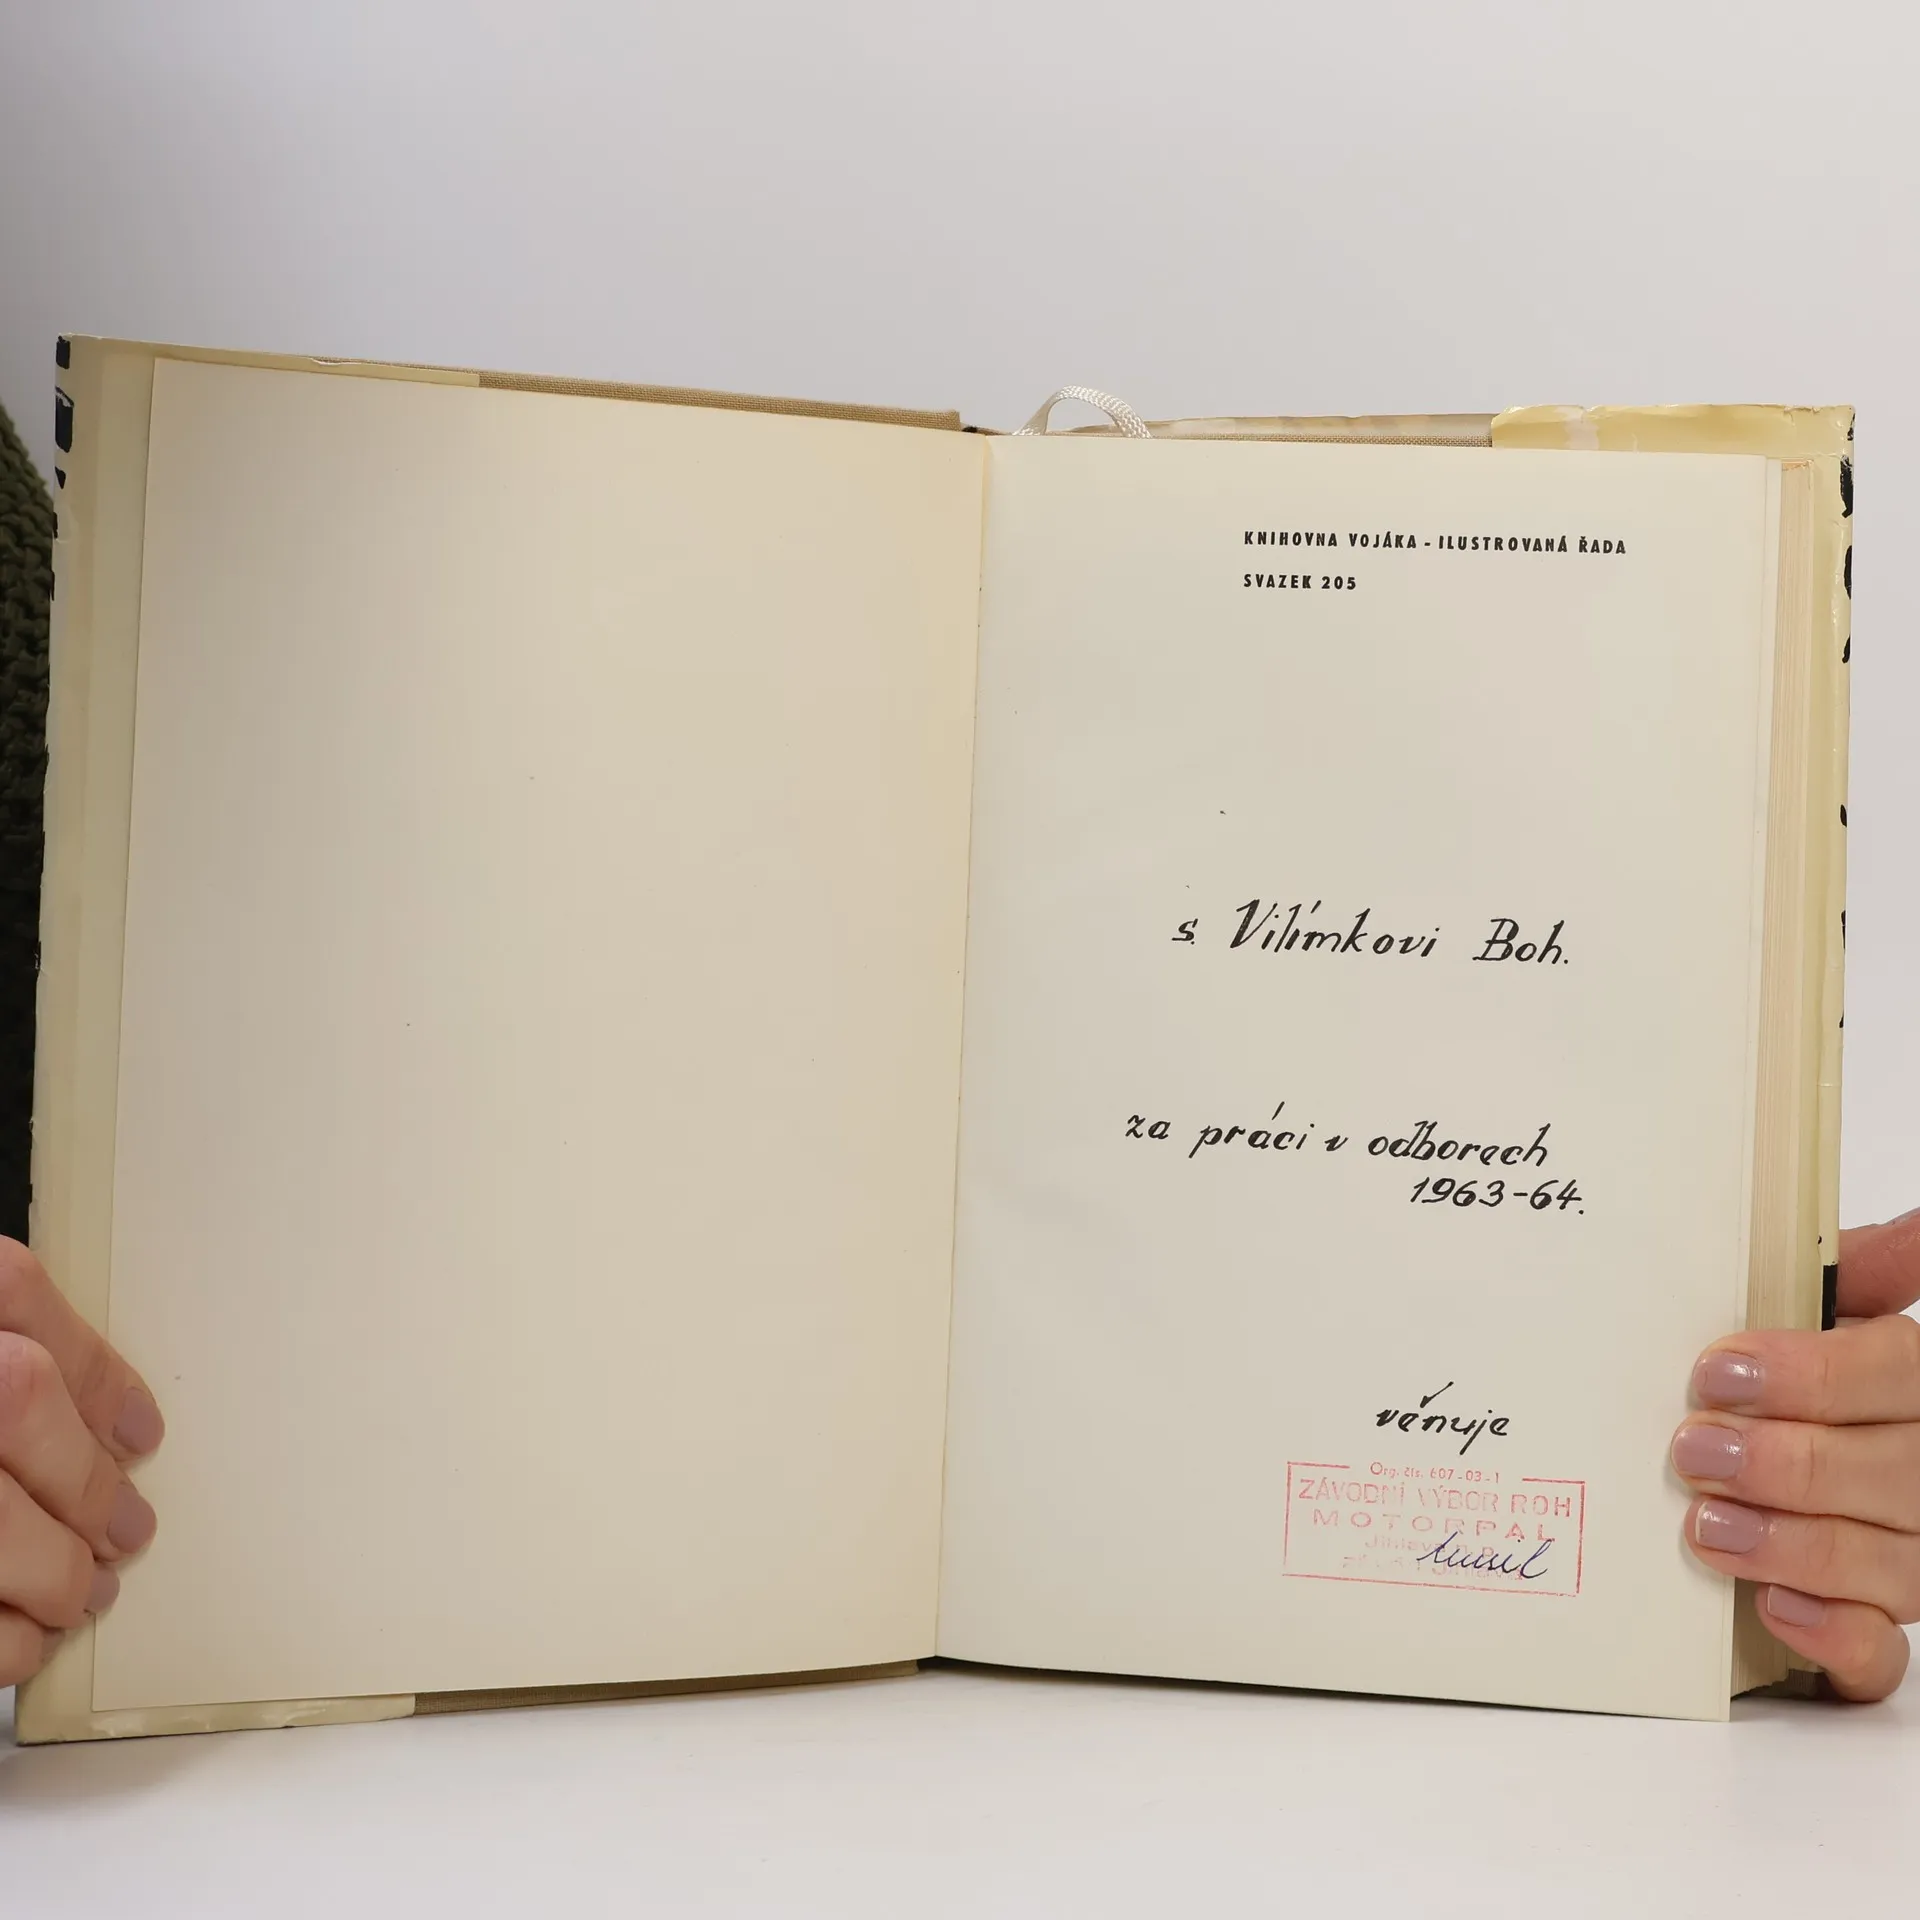 KNIHOVNA VOJÁKA - ILUSTROVANÁ ŘADA
SVAZEK 205
s. Vilímkovi Boh.
za práci v odborech
1963-64.
věnuje
Org. čís. 607-03-1
ZÁVODNÍ VÝBOR ROH
MOTORPAL
Jihlava n. p.